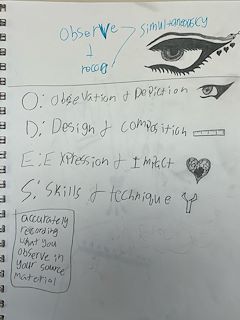 Observe
simultaneously
&
record
O: Observation & Depiction
D: Design & composition
E: Expression & Impact
S: Skills & technique
accurately
recording
what you
observe in
your source
material